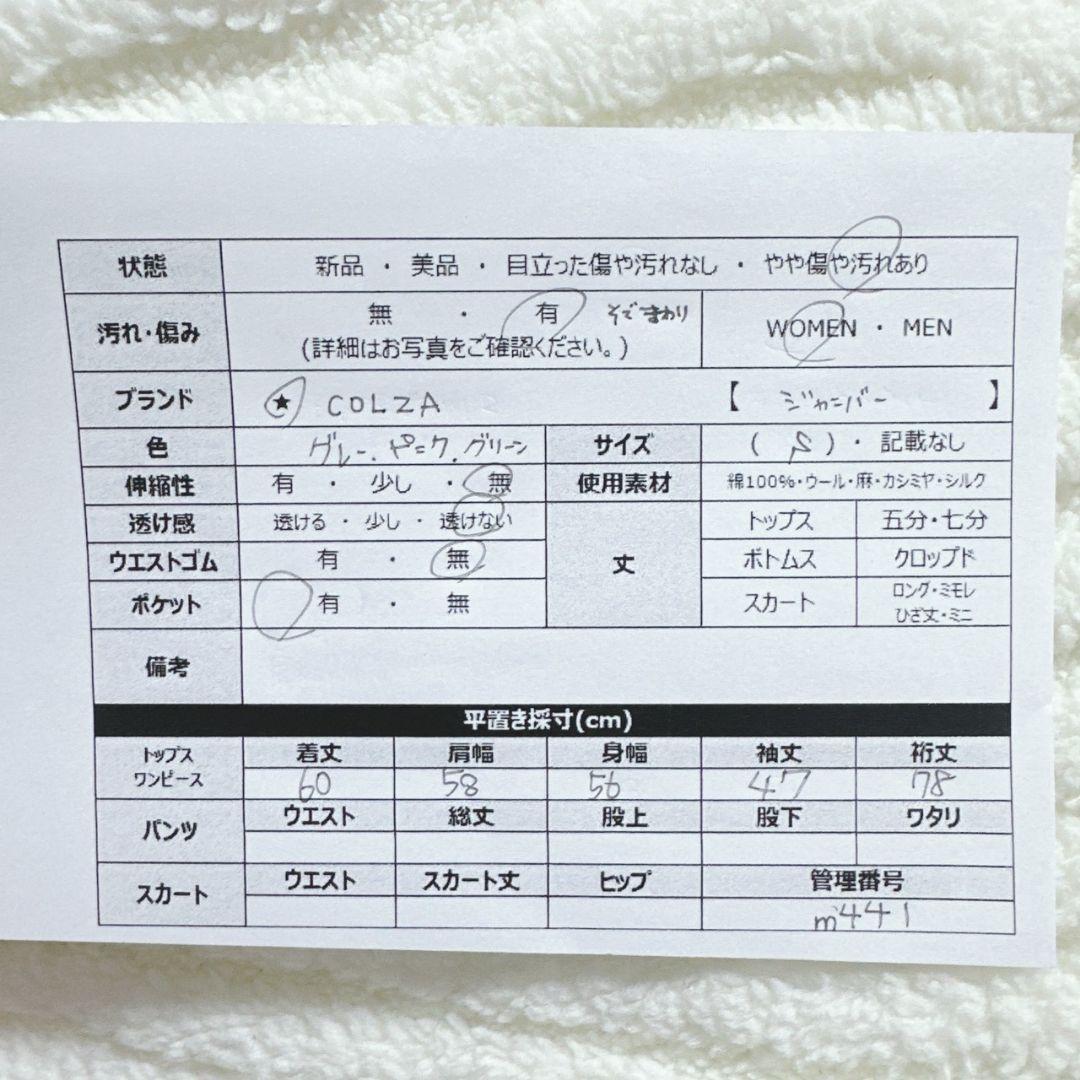 状態 新品 ・ 美品 ・ 目立った傷や汚れなし ・ やや傷や汚れあり
汚れ・傷み 無 ・ 有 そでまわり WOMEN ・ MEN
(詳細はお写真をご確認ください。)
ブランド ★ COLZA 【 ジャンパー 】
色 グレー、ピンク、グリーン サイズ ( S ) ・ 記載なし
伸縮性 有 ・ 少し ・ 無 使用素材 綿100%・ウール・麻・カシミヤ・シルク
透け感 透ける ・ 少し ・ 透けない 丈 トップス 五分・七分
ウエストゴム 有 ・ 無 ボトムス クロップド
ポケット 有 ・ 無 スカート ロング・ミモレ
ひざ丈・ミニ
備考
平置き採寸(cm)
トップス ワンピース 着丈 肩幅 身幅 袖丈 裄丈
60 58 56 47 78
パンツ ウエスト 総丈 股上 股下 ワタリ
スカート ウエスト スカート丈 ヒップ 管理番号
m441